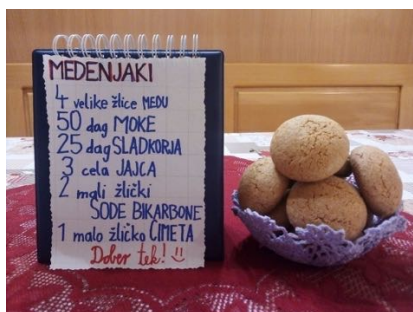 MEDENJAKI
4 velike žlice MEDU
50 dag MOKE
25 dag SLADKORJA
3 cela JAJCA
2 mali žlički
SODE BIKARBONE
1 malo žličko CIMETA
Dober tek!